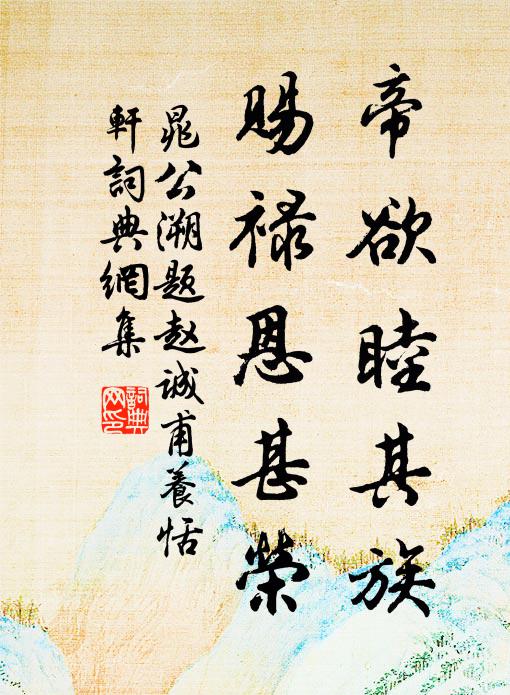 帝欲睦其族
赐禄恩甚荣
晁公溯题赵诚甫養恬
軒詞典網集
詞典
网印